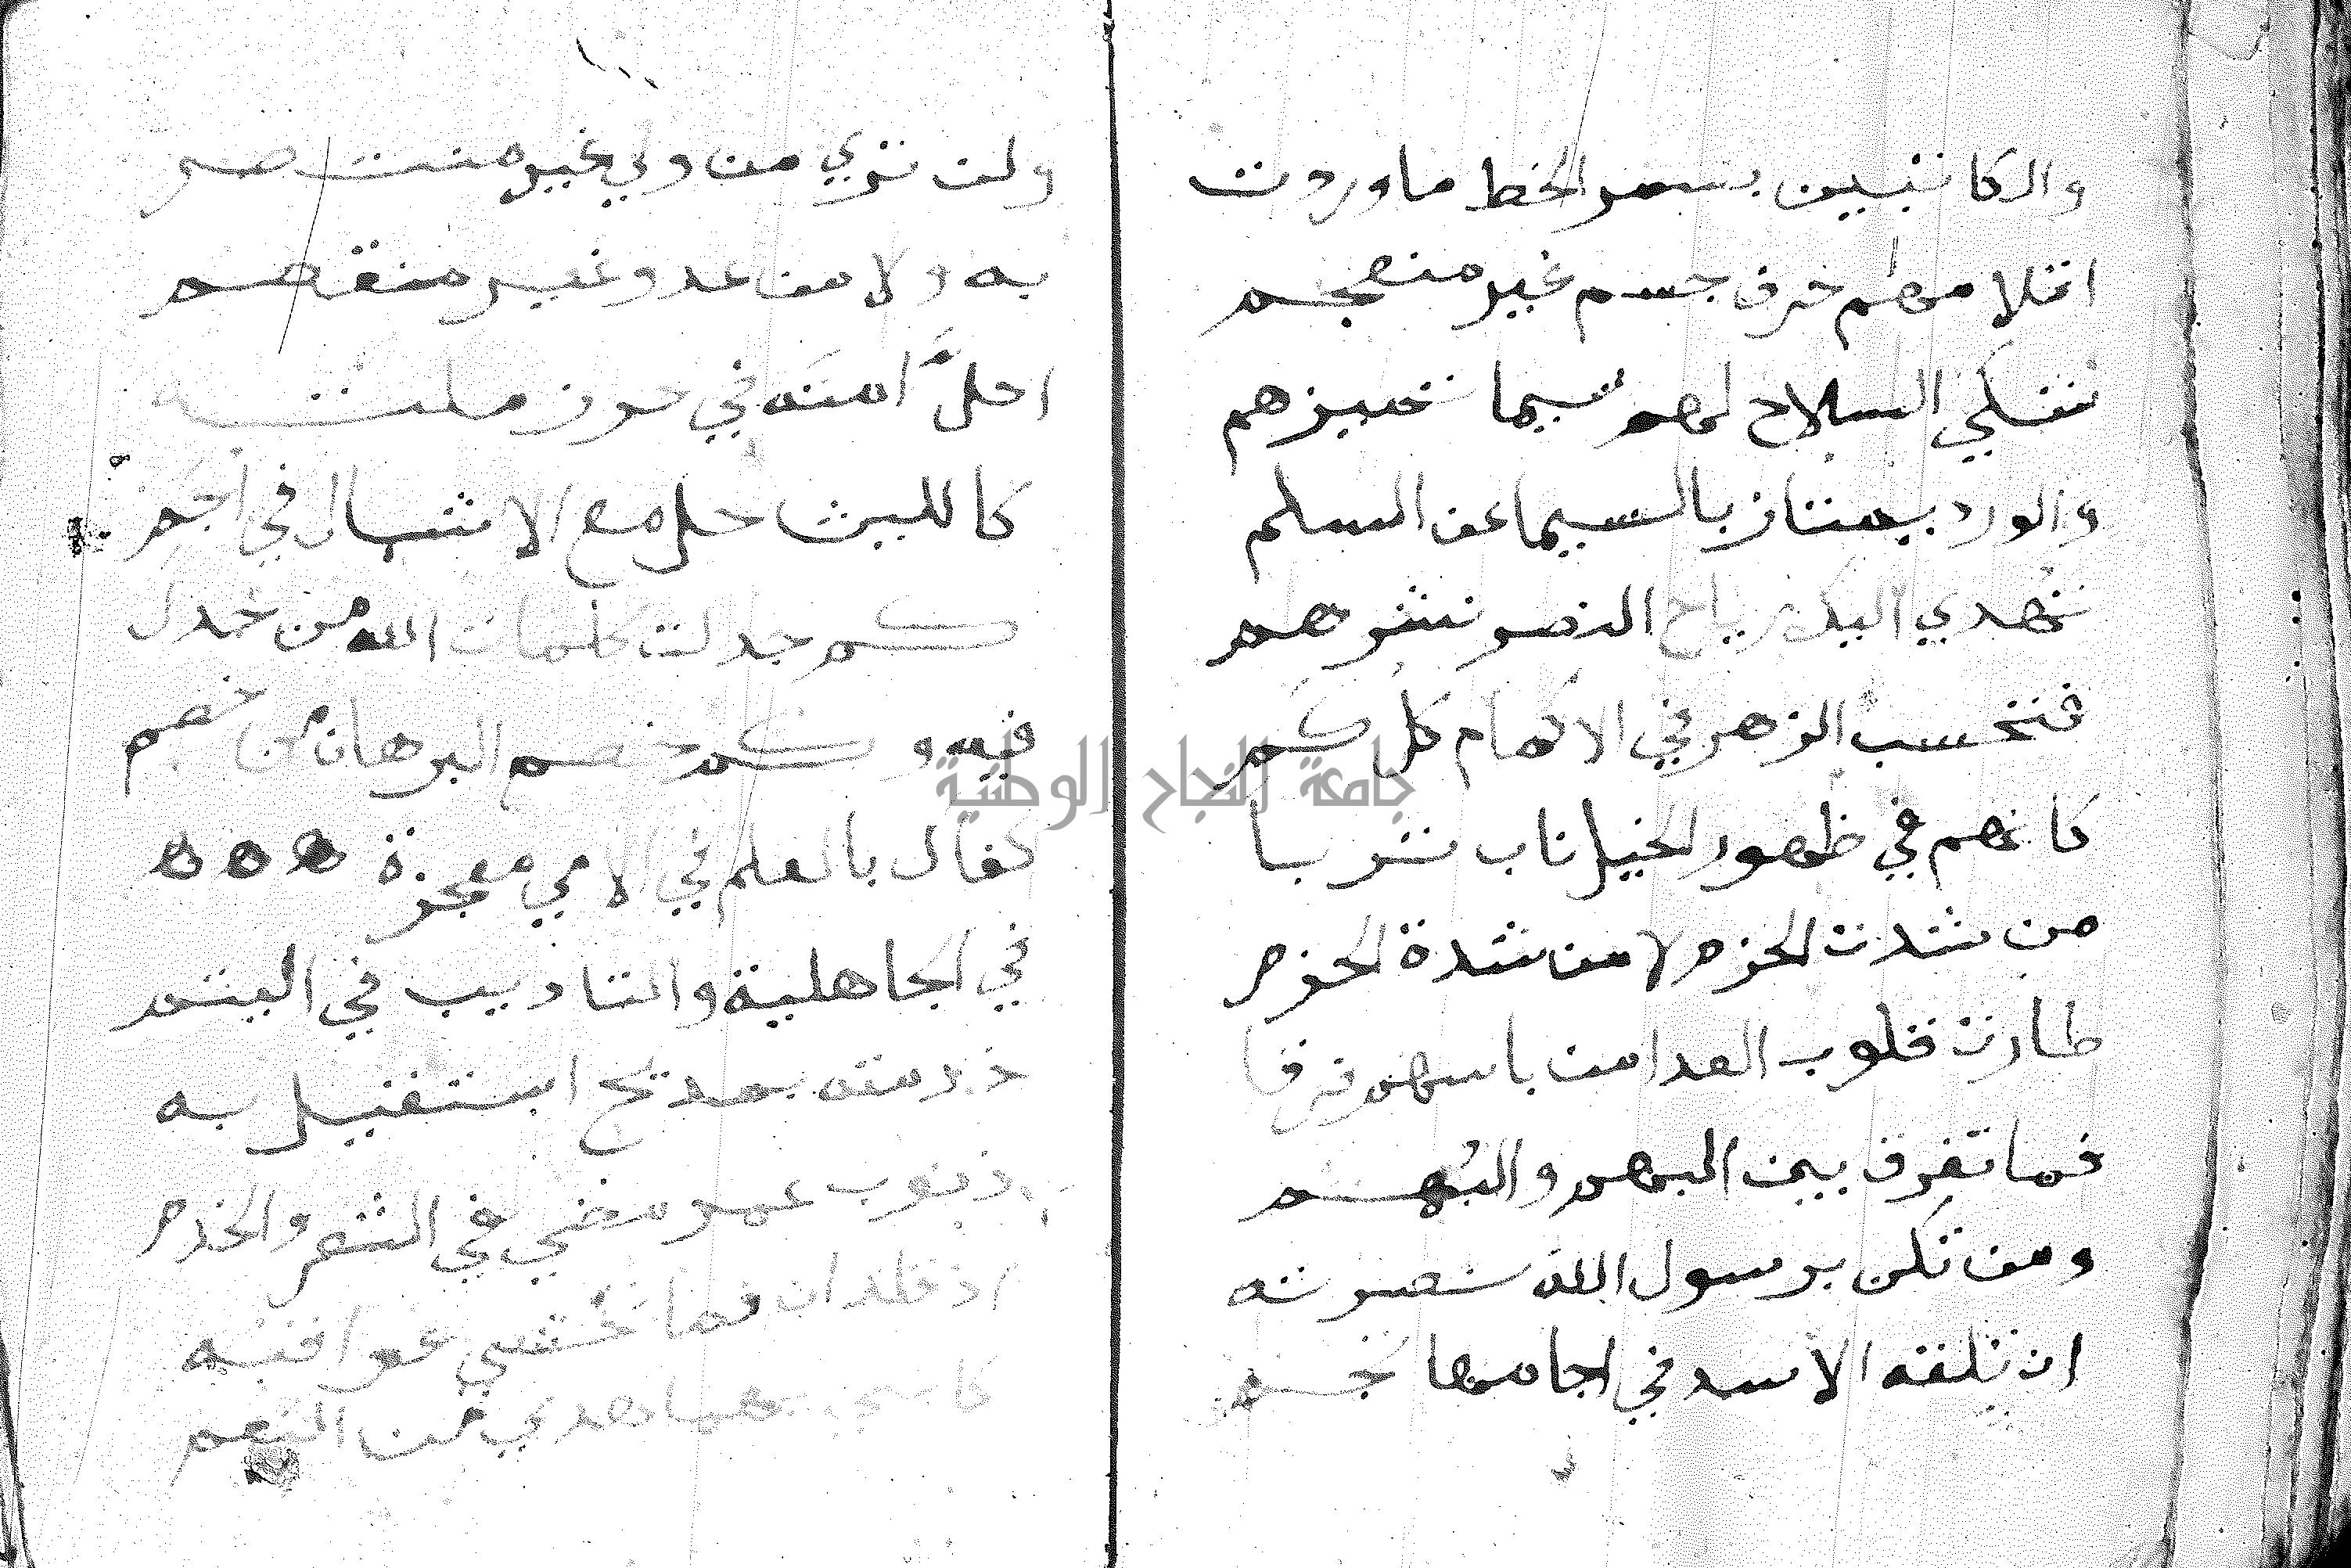 والكاتبين بسمر الخط ما وردت
اقلامهم حرف جسم غير منعجم
شاكي السلاح لهم سيما تميزهم
والورد يمتاز بالسيما عن السلم
تهدي اليك رياح النصر نشرهم
فتحسب الزهر في الاكمام كل كم
كانهم في ظهور الخيل نات ربا
من شدت الحزم لا من شدة الحزم
طارت قلوب العدا من باسهم فرقا
فما تفرق بين البهم والبُهم
ومن تكن برسول الله نصرته
ان تلقه الاسد في اجامها تجم
ولن تري من ولي غير منتصر
به ولا من عدو غير منقصم
احلَّ امته في حرز ملته
كالليث حل مع الاشبال في اجم
كم جدلت كلمات الله من جدل
فيه وكم خصم البرهان من خصم
كفاك بالعلم في الامي معجزة
في الجاهلية والتاديب في اليتم
خدمته بمديح استقيل به
ذنوب عمر مضي في الشعر والخدم
اذ قلدان ما تخشي عواقبه
بهما هدي من النعم
جامعة النجاح الوطنية